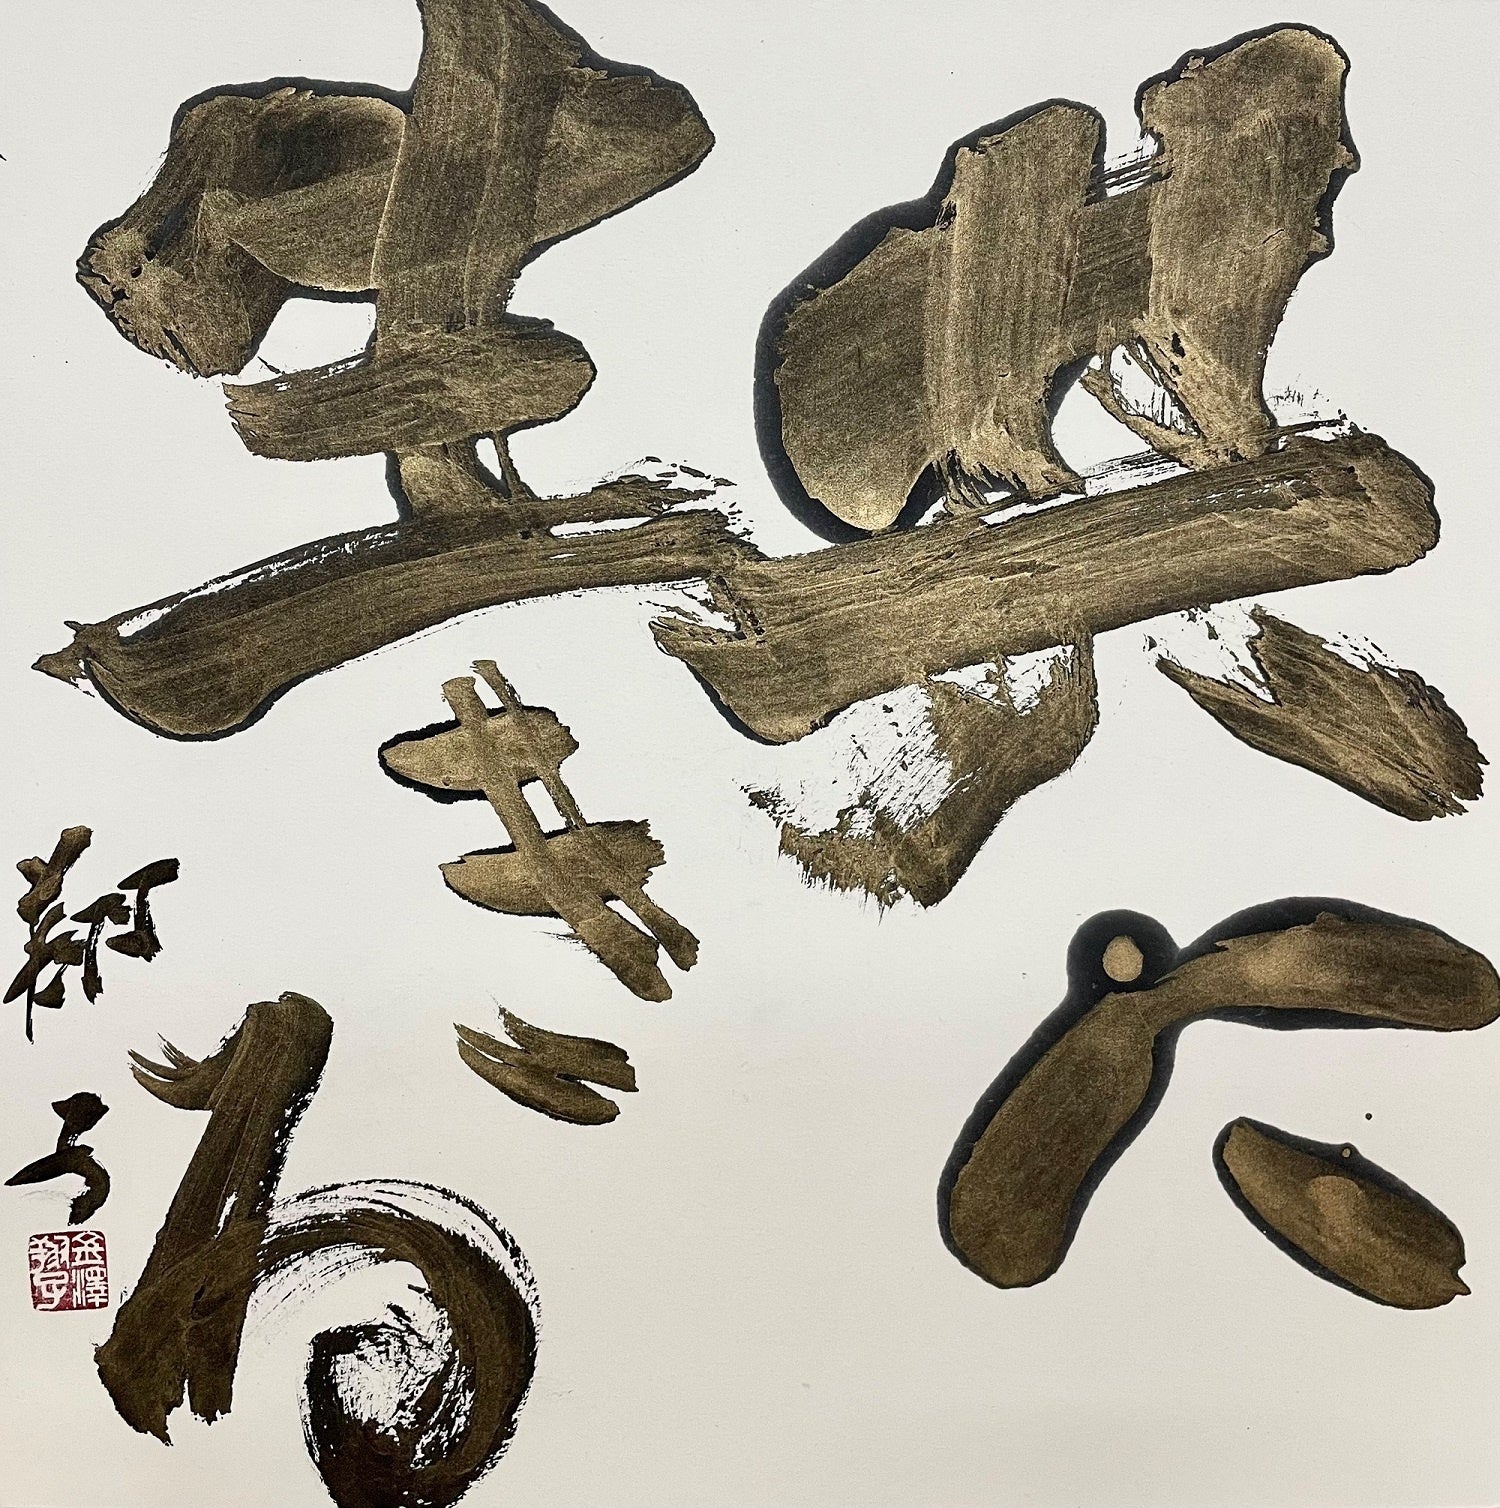 共に
生きる
翔子
金澤翔子